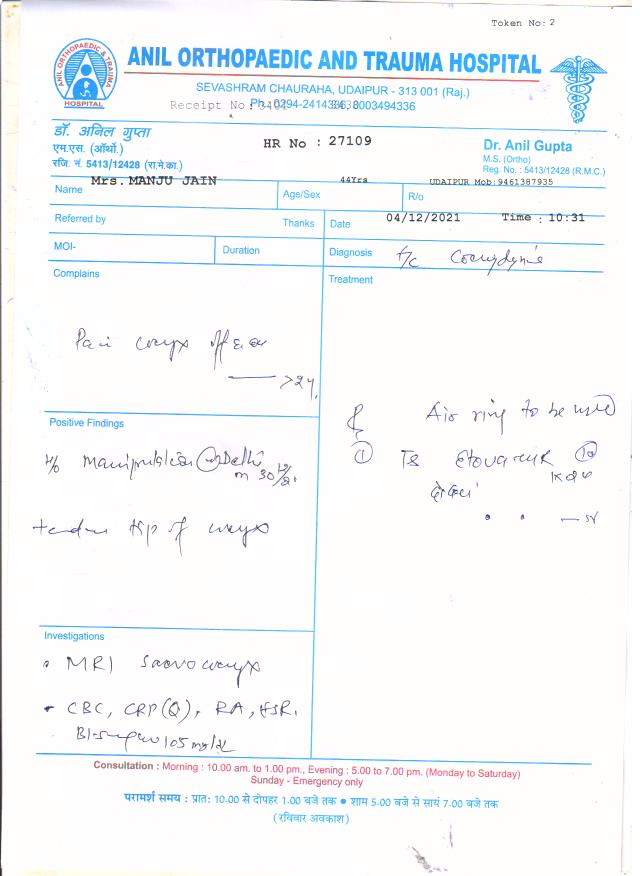 Token No: 2
ANIL ORTHOPAEDIC & TRAUMA
HOSPITAL
ANIL ORTHOPAEDIC AND TRAUMA HOSPITAL
SEVASHRAM CHAURAHA, UDAIPUR - 313 001 (Raj.)
Receipt No: Ph.: 0294-2414 8003494336
डॉ. अनिल गुप्ता
एम.एस. (ऑर्थो.)
रजि. नं. 5413/12428 (रा.मे.का.)
HR No : 27109
Dr. Anil Gupta
M.S. (Ortho)
Reg. No. : 5413/12428 (R.M.C.)
Name Mrs. MANJU JAIN Age/Sex 44Yrs R/o UDAIPUR Mob:9461387935
Referred by Thanks Date 04/12/2021 Time : 10:31
MOI- Duration Diagnosis Coccydynia
Complains
Treatment
Pain coccyx
>2y.
Positive Findings
Air ring to be used
H/o Manipulation Delhi
on 30
① T
tender tip of coccyx
Investigations
• MRI Sacro coccyx
• CBC, CRP (Q), RA, ESR,
105 mg/dl
Consultation : Morning : 10.00 am. to 1.00 pm., Evening : 5.00 to 7.00 pm. (Monday to Saturday)
Sunday - Emergency only
परामर्श समय : प्रातः 10.00 से दोपहर 1.00 बजे तक ● शाम 5.00 बजे से सायं 7.00 बजे तक
(रविवार अवकाश)